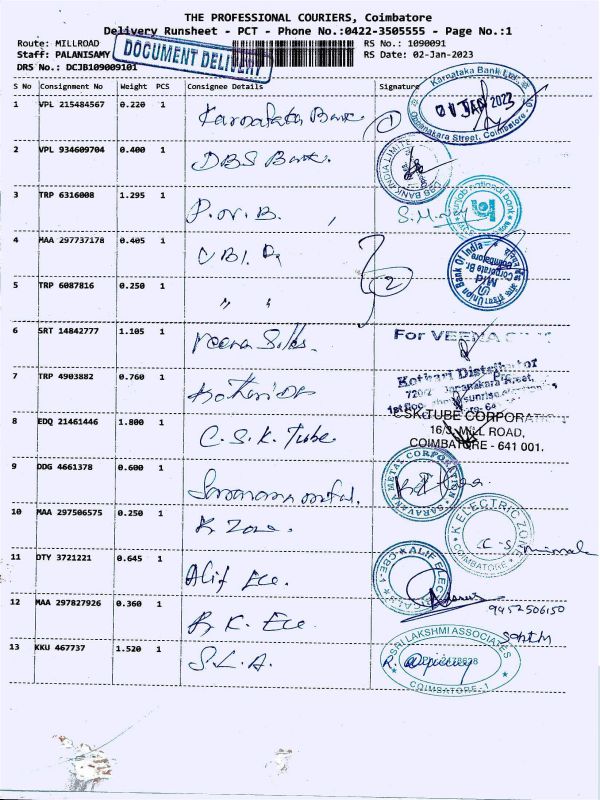 THE PROFESSIONAL COURIERS, Coimbatore
Delivery Runsheet - PCT - Phone No.:0422-3505555 - Page No.:1
Route: MILLROAD RS No.: 1090091
Staff: PALANISAMY RS Date: 02-Jan-2023
DRS No.: DCJB109009101
DOCUMENT DELIVERY
S No Consignment No Weight PCS Consignee Details Signature
1 VPL 215484567 0.220 1 Karnataka Bank 1
Karnataka Bank Ltd.
Oppanakara Street, Coimbatore
2 VPL 934609704 0.400 1 DBS Bank.
DBS BANK INDIA LIMITED
3 TRP 6316008 1.295 1 P.N.B.
punjab national bank
4 MAA 297737178 0.405 1 UBI
2
Union Bank Of India
Corporate Br.
Coimbatore
5 TRP 6087816 0.250 1 " "
6 SRT 14842777 1.105 1 Veena Silks.
For VEENA SILK
7 TRP 4903882 0.760 1 Kothari
Kothari Distributor
8 EDQ 21461446 1.800 1 C.S.K. Tube
CSK TUBE CORPORATION
16/3, MILL ROAD,
COIMBATORE - 641 001.
9 DDG 4661378 0.600 1
SARAVANA METAL CORPORATION
10 MAA 297506575 0.250 1 K Zone.
K ELECTRIC ZONE
COIMBATORE
11 DTY 3721221 0.645 1 Alif Ele.
ALIF ELECTRICALS
CBE-1
12 MAA 297827926 0.360 1 R.K. Ele
9452506150
13 KKU 467737 1.520 1 S.L.A.
SRI LAKSHMI ASSOCIATES
COIMBATORE-1